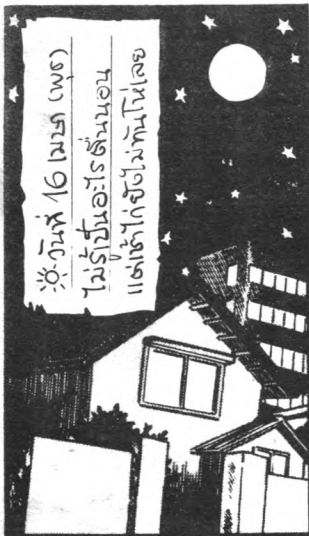 วันที่ 16 เมษา (พุธ)
ไม่รู้เป็นอะไรตื่นนอน
แต่เช้าไก่ยังไม่ทันโห่เลย